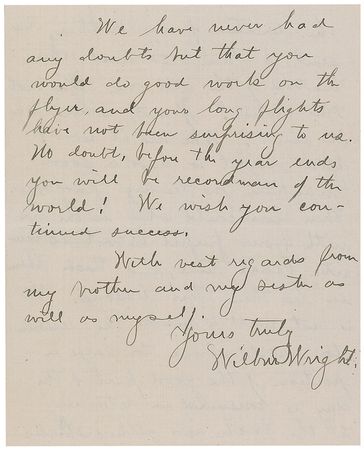 We have never had
any doubts but that you
would do good work on the
flyer, and your long flights
have not been surprising to us.
No doubt, before the year ends
you will be recordman of the
world! We wish you con-
tinued success.
With best regards from
my brother and my sister as
well as myself.
Yours truly
Wilbur Wright.